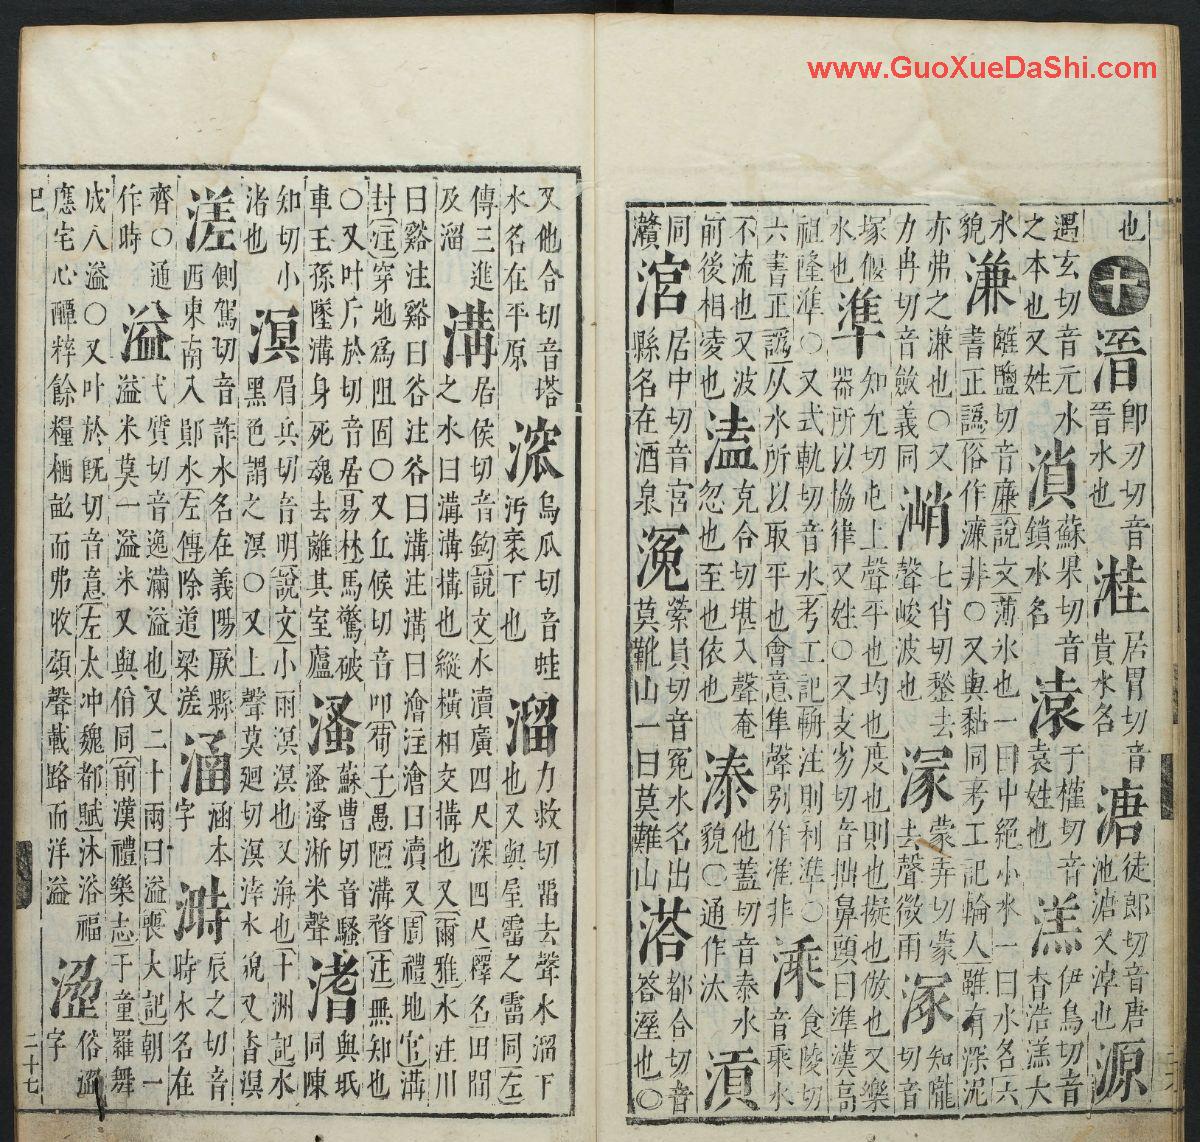 也
十溍
卽刃切音
晉水也
溎
居胃切音
貴水名
溏
徒郎切音唐
池溏又淖也
源
遇玄切音元水
之本也又姓
溑
蘇果切音
鎖水名
溒
于權切音
袁姓也
溔
伊鳥切音
杳浩溔大
水
貌
溓
離鹽切音廉說文薄氷也一曰中絕小水一曰水名六
書正譌俗作濂非○又與黏同考工記輪人雖有深泥
亦弗之溓也○又
力冉切音斂義同
七肖切愁去
聲峻波也
溕
蒙弄切蒙
去聲㣲雨
知隴
切音
塚偃
水也
準
知允切屯上聲平也均也度也則也擬也倣也又樂
器所以協律又姓○又支劣切音拙鼻頭曰準漢高
祖隆準○又式軌切音水考工記輈注則利準○
六書正譌从水所以取平也會意隼聲別作准非
溗
食陵切
音乘水
不流也又波
前後相凌也
溘
克合切堪入聲奄
忽也至也依也
溙
他蓋切音泰水
貌○通作汰
溳
同
灨
居中切音宮
縣名在酒泉
縈員切音冤水名出
莫靴山一曰莫難山
溚
都合切音
答溼也○
又他合切音塔
水名在平原
溛
烏瓜切音蛙
汚衺下也
溜
力救切畱去聲水溜下
也又與屋霤之霤同左
傳三進
及溜
溝
居侯切音鉤說文水瀆廣四尺深四尺釋名田間
之水曰溝溝搆也縱橫相交搆也又爾雅水注川
曰谿注谿曰谷注谷曰溝注溝曰澮注澮曰瀆又周禮地官溝
封注穿地爲阻固○又丘候切音叩荀子愚陋溝瞀注無知也
○又叶斤於切音居易林馬驚破
車王孫墜溝身死魂去離其室廬
溞
蘇曹切音騷
溞溞淅米聲
與坻
同陳
知切小
渚也
溟
眉兵切音明說文小雨溟溟也又海也十洲記水
黑色謂之溟○又上聲莫迥切溟涬水貌又杳溟
溠
側駕切音詐水名在義陽厥縣
西東南入鄖水左傳除道梁溠
涵
涵本
字
溡
辰之切音
時水名在
齊○通
作時
溢
弋質切音逸滿溢也又二十兩曰溢喪大記朝一
溢米莫一溢米又與佾同前漢禮樂志千童羅舞
成八溢○又叶於旣切音意左太冲魏都賦沐浴福
應宅心醰粹餘糧栖畝而弗收頌聲載路而洋溢
俗澀
字
巳
二十七
www.GuoXueDaShi.com